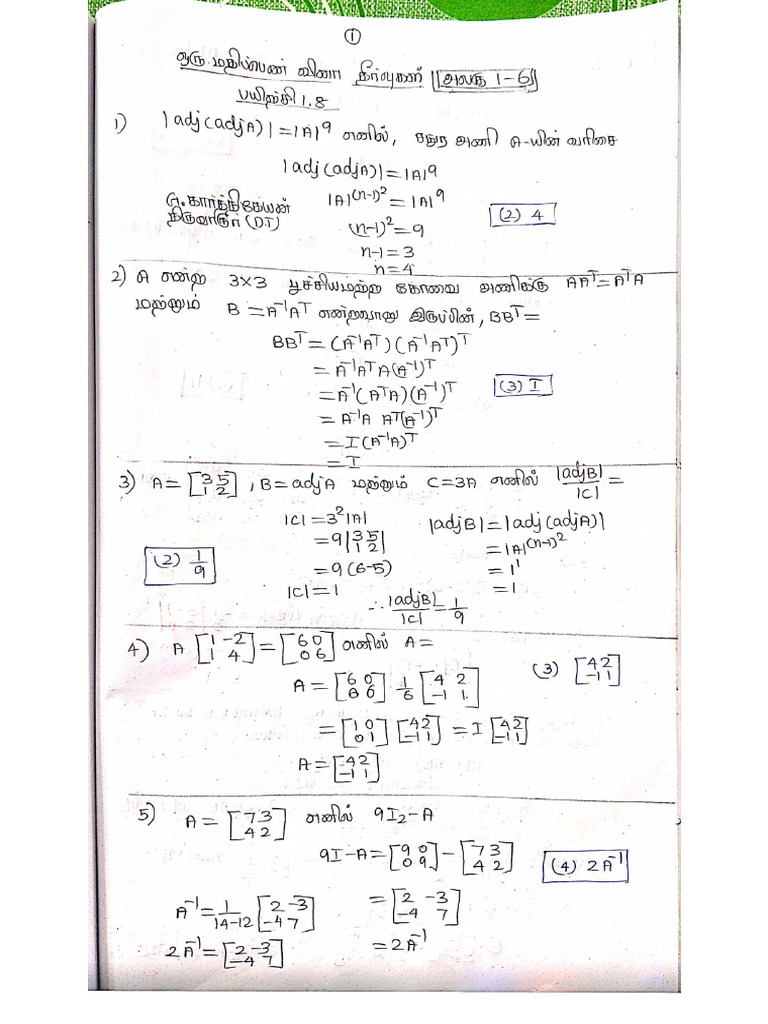 ①
ஒரு மதிப்பெண் வினா தீர்வுகள் அலகு 1-6
பயிற்சி 1.8
1) |adj(adjA)| = |A|⁹ எனில், சதுர அணி A-யின் வரிசை
|adj(adjA)| = |A|⁹
|A|^(n-1)² = |A|⁹
(n-1)² = 9
n-1 = 3
n = 4
(2) 4
கார்த்திகேயன்
திருவாரூர் (DT)
2) A என்ற 3×3 பூச்சியமற்ற கோவை அணிக்கு AAᵀ = AᵀA
மற்றும் B = A⁻¹Aᵀ என்றவாறு இருப்பின், BBᵀ =
BBᵀ = (A⁻¹Aᵀ)(A⁻¹Aᵀ)ᵀ
= A⁻¹AᵀA(A⁻¹)ᵀ
= A⁻¹(AᵀA)(A⁻¹)ᵀ
= A⁻¹A Aᵀ(A⁻¹)ᵀ
= I(A⁻¹A)ᵀ
= I
(3) I
3) A = [3 5; 1 2], B = adjA மற்றும் C = 3A எனில் |adjB|/|C| =
|C| = 3²|A|
= 9|3 5; 1 2|
= 9(6-5)
|C| = 1
(2) 1/9
|adjB| = |adj(adjA)|
= |A|^(n-1)²
= 1¹
= 1
∴ |adjB|/|C| = 1/9
4) A [1 -2; 1 4] = [6 0; 0 6] எனில் A =
A = [6 0; 0 6] 1/6 [4 2; -1 1]
= [1 0; 0 1] [4 2; -1 1] = I [4 2; -1 1]
A = [4 2; -1 1]
(3) [4 2; -1 1]
5) A = [7 3; 4 2] எனில் 9I₂-A
9I-A = [9 0; 0 9] - [7 3; 4 2]
= [2 -3; -4 7]
= 2A⁻¹
(4) 2A⁻¹
A⁻¹ = 1/14-12 [2 -3; -4 7]
2A⁻¹ = [2 -3; -4 7]